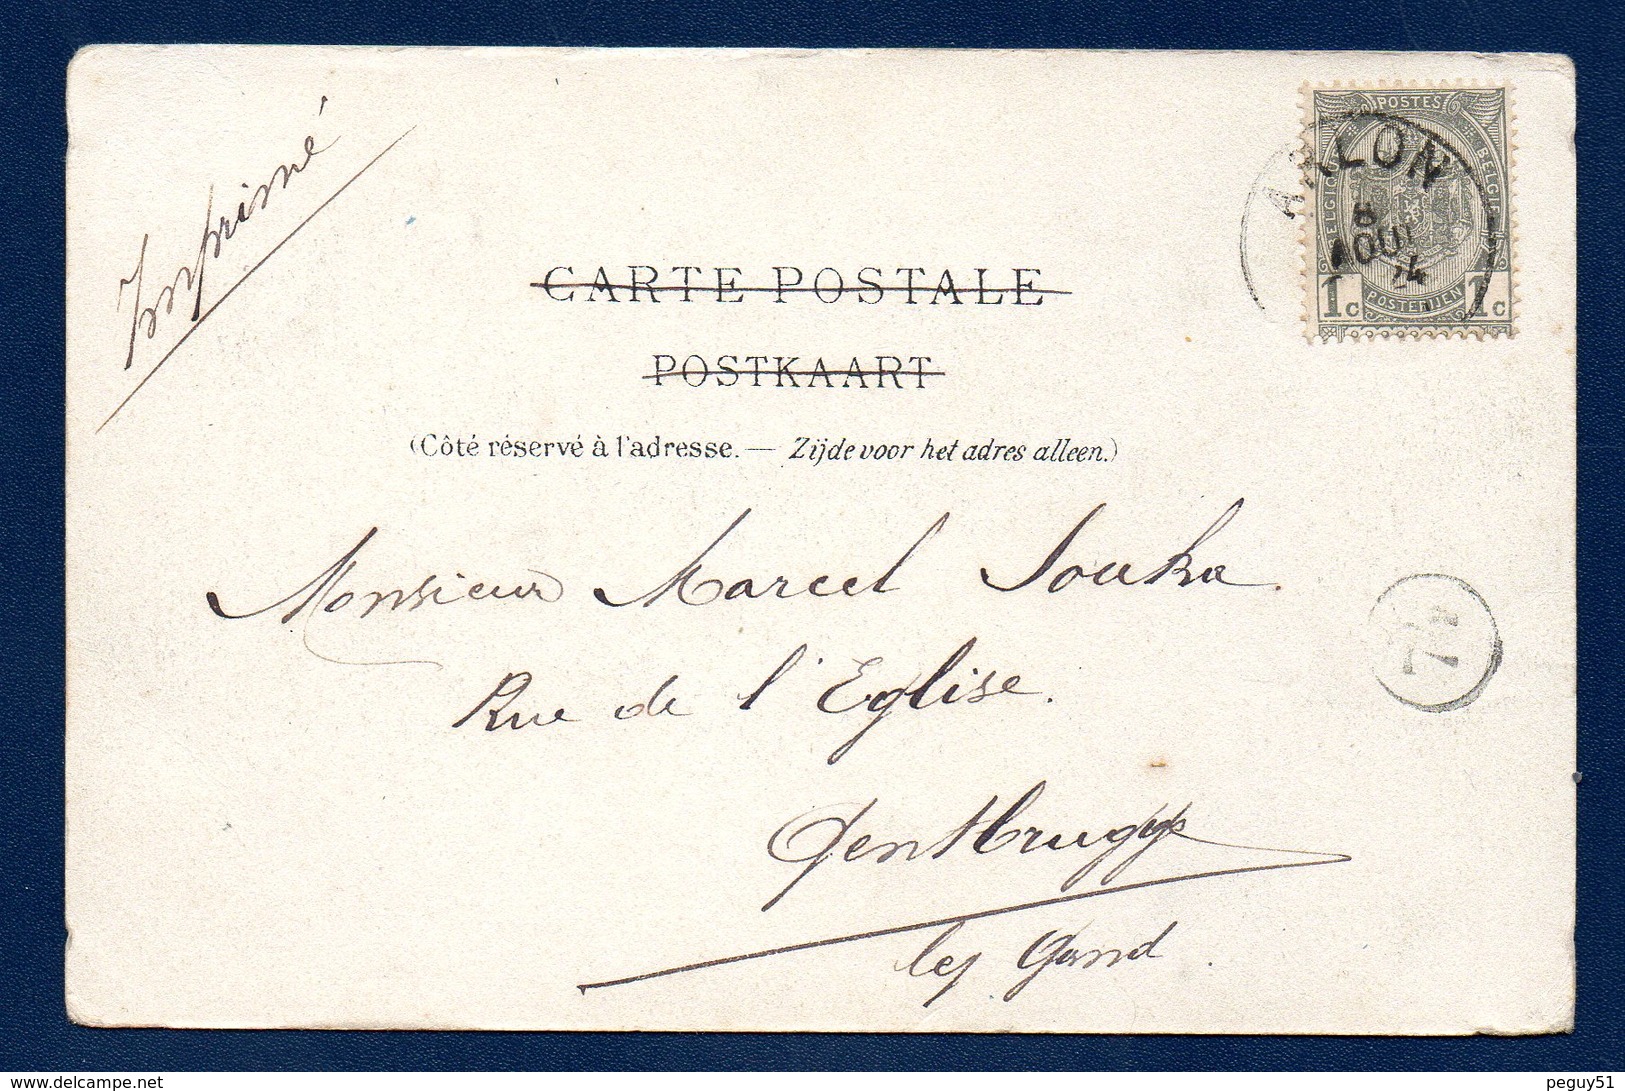 Imprimé
POSTES
BELGIQUE
BELGIE
ARLON
8
AOUT
1 c
POSTERIJEN
1 c
CARTE POSTALE
POSTKAART
(Côté réservé à l'adresse. — Zijde voor het adres alleen.)
Monsieur Marcel Souka.
Rue de l'Eglise.
Gentbrugge
lez Gand.
delcampe.net
peguy51